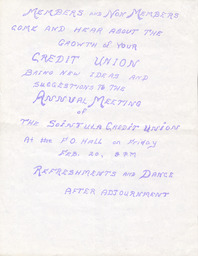 MEMBERS AND NON MEMBERS
COME AND HEAR ABOUT THE
GROWTH OF YOUR
CREDIT UNION
BRING NEW IDEAS AND
SUGGESTIONS TO THE
ANNUAL MEETING
of
THE SOINTULA CREDIT UNION
At the F.O. HALL on FRIDAY
FEB. 20, 8 P.M
REFRESHMENTS AND DANCE
AFTER ADJOURNMENT